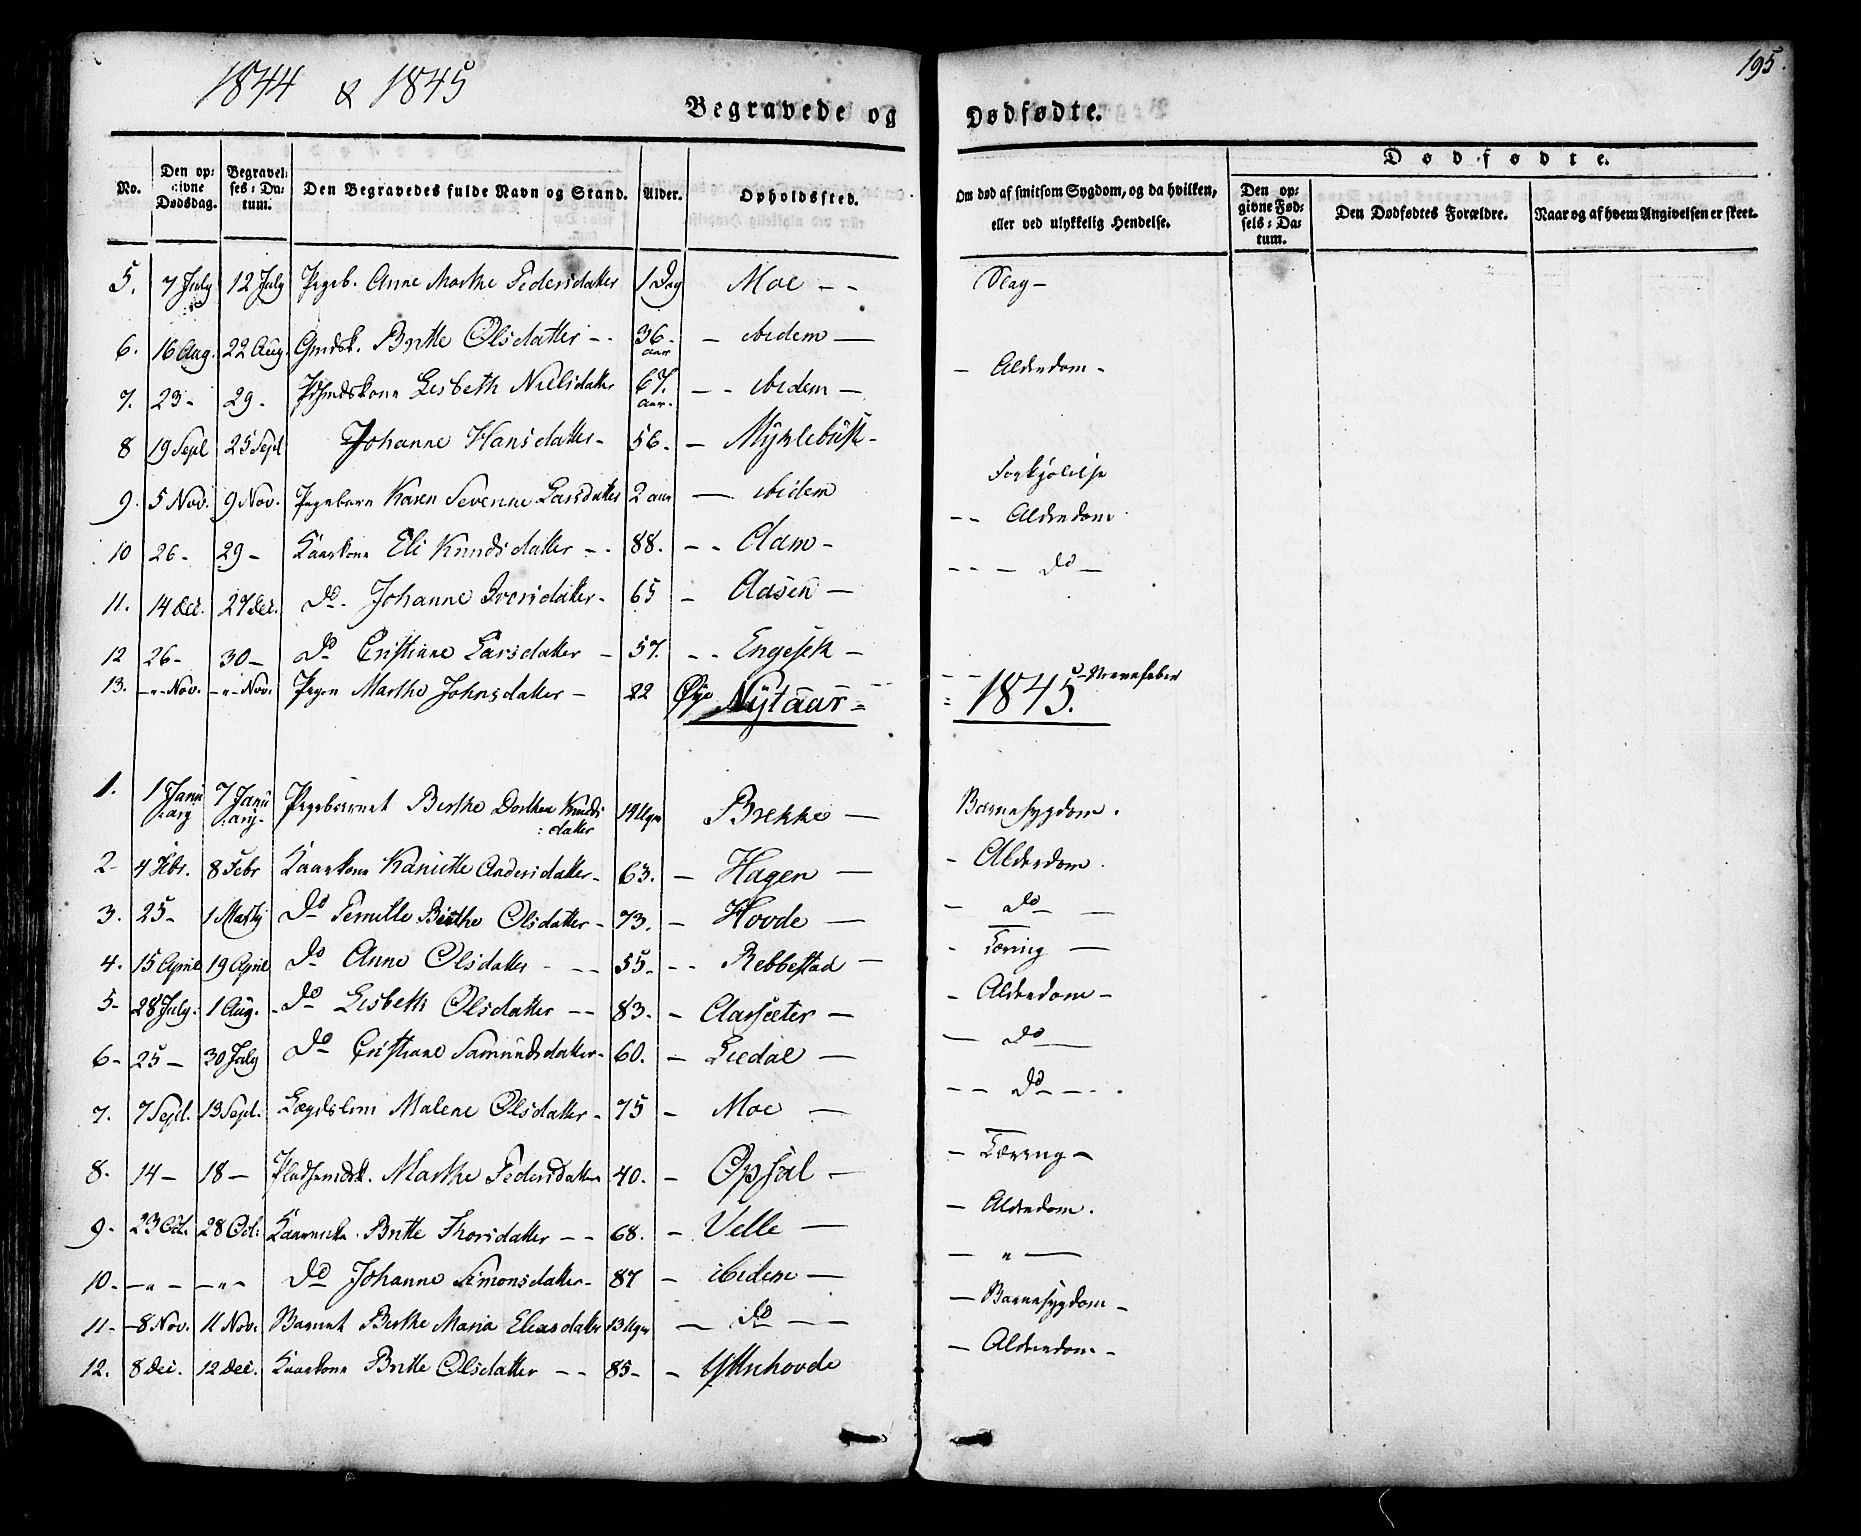 195.
1844 & 1845
Begravede og Dødfødte.
Dødfødte.
No. Den opgivne Dødsdag. Begravelses-Datum. Den Begravedes fulde Navn og Stand. Alder. Opholdssted. Om død af smitsom Sygdom, og da hvilken, eller ved ulykkelig Hendelse. Den opgivne Fødsels-Datum. Den Dødfødtes Forældre. Naar og af hvem Angivelsen er skeet.
5. 7 July 12 July Pigeb. Anne Marthe Pedersdatter 1 Dag Moe - - Slag -
6. 16 Aug. 22 Aug. Gmdsk. Britte Olsdatter - - 36 aar - ibidem -
7. 23 - 29 - Lisbeth Nielsdatter 67. aar - - ibidem - - Alderdom -
8 19 Sept 25 Sept Johanne Hansdatter - 56 - - Myklebust -
9. 5 Nov. 9 Nov. Pigebarn Karen Severine Larsdatter 2 aar - ibidem Forkjølelse
10 26 - 29 - Kaarkone Eli Knudsdatter - - 88. - - Aam - - - Alderdom
11. 14 Dec. 27 Dec. Do. Johanne Iversdatter - 65 - Aasen - - - - Do -
12 26 - 30 - Do Cristiane Larsdatter - 57. - - Engeset -
13. - " - Nov. - " - Nov. Pigen Marthe Johnsdatter - 22 Øye - - Nervefeber
Nytaar = = 1845.
1. 1 Januarij 7 Januarij Pigebarnet Berthe Dorthea Knudsdatter 14 Uger Brekke - Barnesygdom.
2 - 4 Febr. 8 Febr Kaarkone Kanutte Andersdatter - 63. - Hagen - - Alderdom.
3. 25 - 1 Martij Do Pernille Birthe Olsdatter - 73. - Hovde - - Do -
4. 15 April 19 April Do Anne Olsdatter - - - 55 - - - Rebbestad - - Tæring -
5 - 28 July. 1 Aug. - Do Lisbeth Olsdatter - - 83. - Aarsæter - - Alderdom -
6 - 25 - 30 July Do Cristiane Samundsdatter - 60. - Liedal - - Do -
7. 7 Sept. 13 Sept. Lægdslem Malene Olsdatter - 75 - Moe - - - Do - - -
8. 14 - 18 - Pladsmdsk. Marthe Pedersdatter 40. - Opsal - - Tæring -
9 - 23 Oct. 28 Oct. Britte Thorsdatter - - 68. - Velle - - Alderdom.
10 - - " - - " - Do Johanne Simonsdatter - 87 - ibidem - - " -
11 - - 8 Nov. 11 Nov. Barnet Berthe Maria Eliasdatter 13 Uger - do - - - Barnesygdom -
12. 8 Dec. 12 Dec. Kaarkone Britte Olsdatter - - 85 - - Ytrehovde - Alderdom -